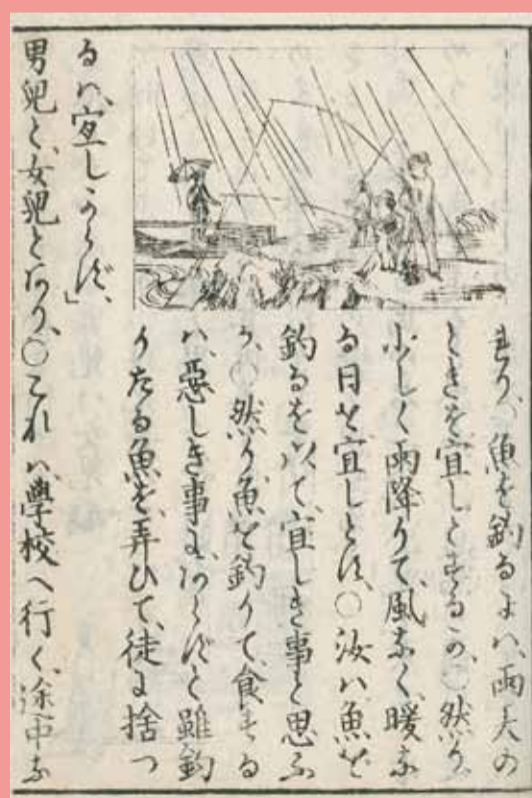 まり、〇魚を釣るよハ、雨天の
ときを宜しとするか、〇然り、
少しく雨降りて、風なく、暖な
る日を宜しとす、〇汝ハ魚を
釣るを以て、宜しき事と思ふ
か、〇然り魚を釣りて、食する
ハ、惡しき事にあらずと雖、釣
りたる魚を、弄ひて、徒に捨つ
るハ、宜しからず、」
男兒と、女兒とあり、〇これハ、學校へ行く、途中な